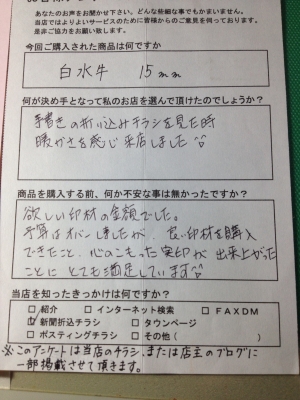 あなたのお声をお聞かせ下さい。どんな些細な事でもかまいません。
当店ではよりよいサービスのために皆様からのご意見を伺っております。
是非ご協力をお願い致します。
今回ご購入された商品は何ですか
白水牛 15mm
何が決め手となって私のお店を選んで頂けたのでしょうか?
手書きの折り込みチラシを見た時
暖かさを感じ来店しました
商品を購入する前、何か不安な事は無かったですか?
欲しい印材の金額でした。
予算はオーバーしましたが、良い印材を購入
できたこと、心のこもった実印が出来上がった
ことにとても満足しています
当店を知ったきっかけは何ですか?
□ 紹介 □ インターネット検索 □ FAXDM
☑ 新聞折込チラシ □ タウンページ
□ ポスティングチラシ □ その他( )
※このアンケートは当店のチラシ、または店主のブログに
一部掲載させて頂きます。